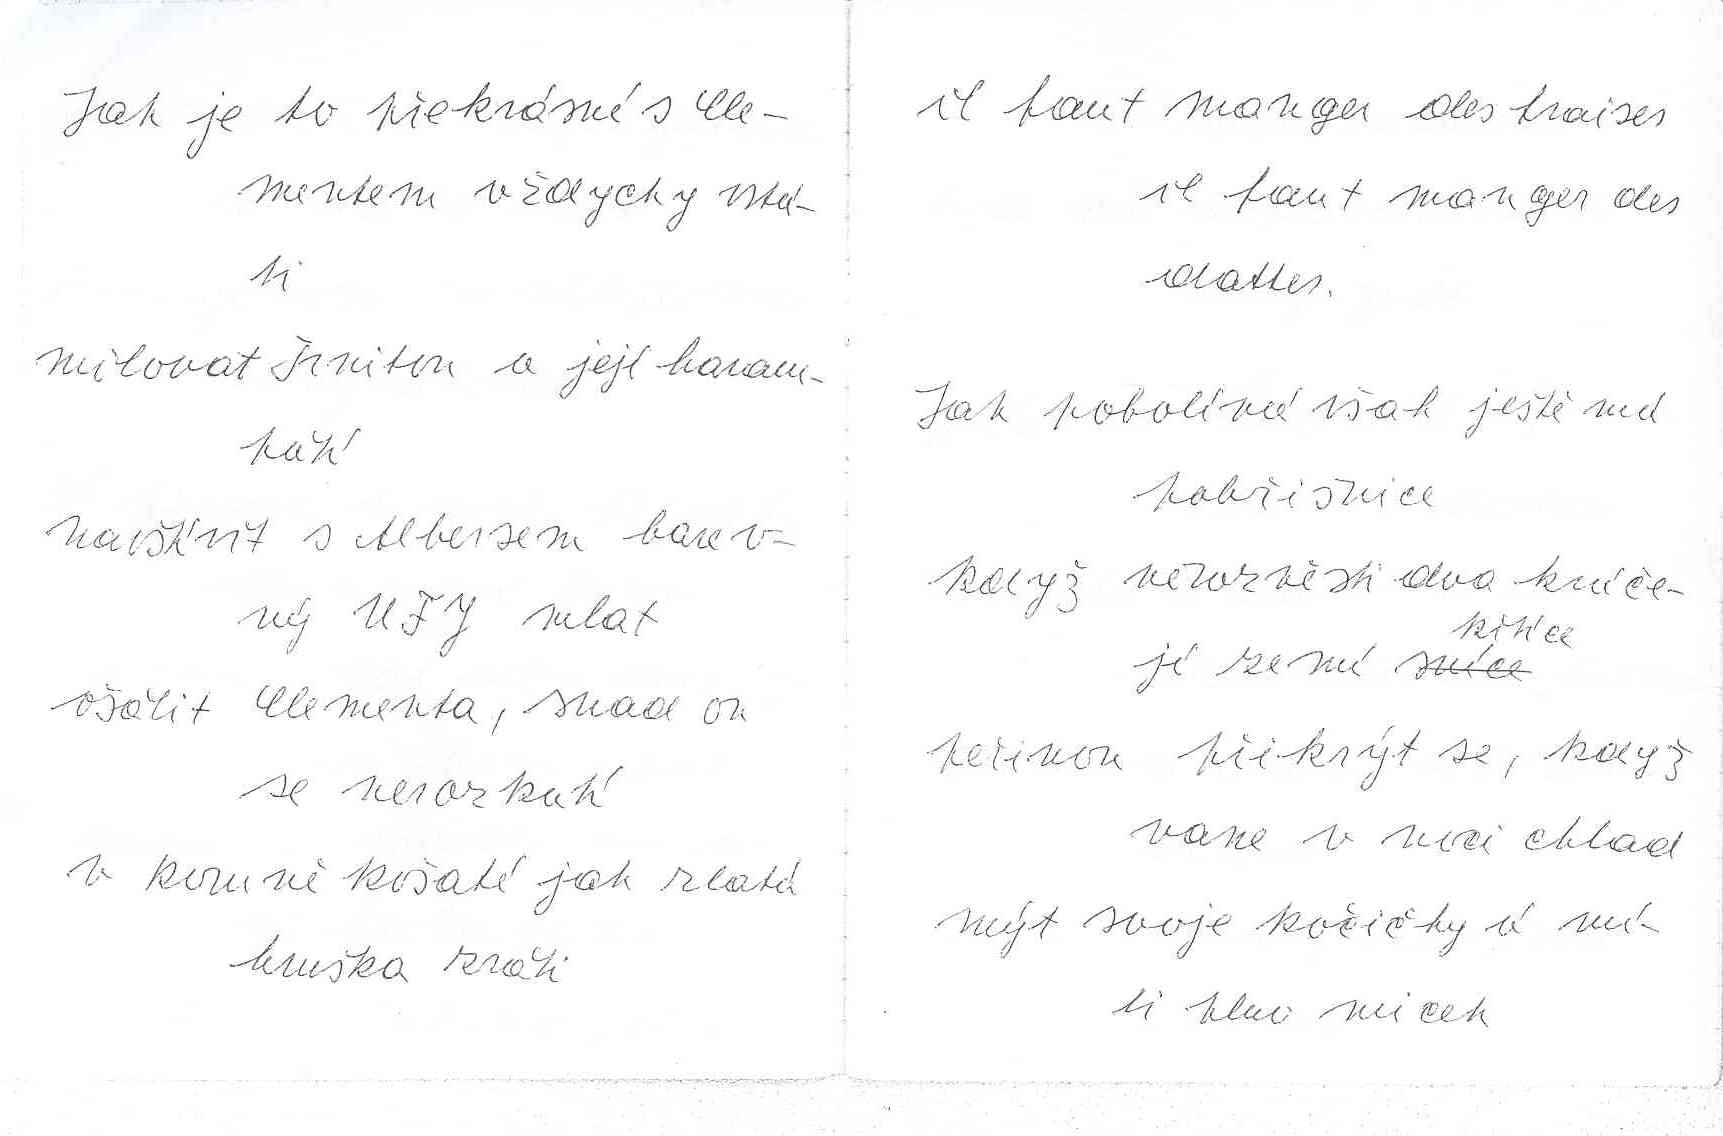 Jak je to překrásné s Cle-
mentem vždycky vstá-
ti
milovat Šrnitou a její haram-
pátí
navštívit s Albersem barev-
ný UFY mlat
ošálit Clementa, snad on
se nerozkatí
v komně košaté jak zlatá
hruška zráti
il faut manger des fraises
il faut manger des
dattes.
Jak pobolívá však ještě má
pobřišnice
když nerozněsti dva kníče-
jí zemí kštice
peřinou přikrýt se, když
vane v noci chlad
mýt svoje kočičky a mí-
ti plno micek